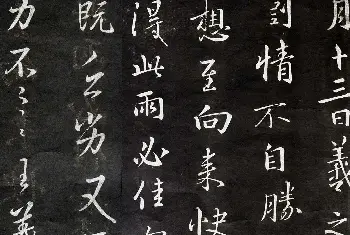 月十三日羲之
情不自勝
想至向來快
得此雨必佳
既乏劣又
力不一一王羲